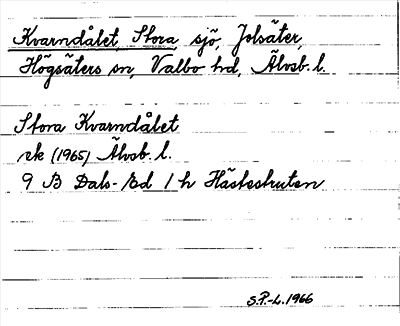 Kvarndålet, Stora, sjö, Jolsäter,
Högsäters sn, Valbo hd, Älvsb. l.
Stora Kvarndålet
rk (1965) Älvsb. l.
9 B Dals-Ed 1 h Hästeskruten
S.P.-L. 1966